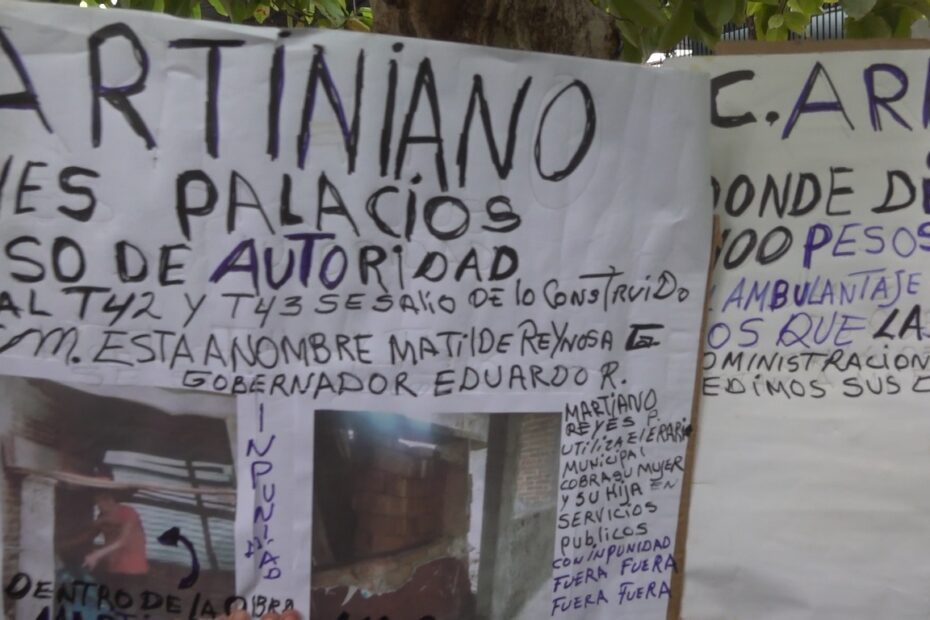 ARTINIANO
YES PALACIOS
SO DE AUTORIDAD
AL T42 Y T43 SE SALIO DE LO CONSTRUIDO
M. ESTA A NOMBRE MATILDE REYNOSA
GOBERNADOR EDUARDO R.
INPUNIDAD
MARTIANO
REYES P.
UTILIZA EL ERARIO
MUNICIPAL
COBRA SU MUJER
Y SU HIJA EN
SERVICIOS
PUBLICOS
CON INPUNIDAD
FUERA FUERA
FUERA FUERA
DENTRO DE LA OBRA
C. AR
DONDE DI
00 PESOS
AMBULANTAJE
OS QUE LA
DMINISTRACION
EDIMOS SUS